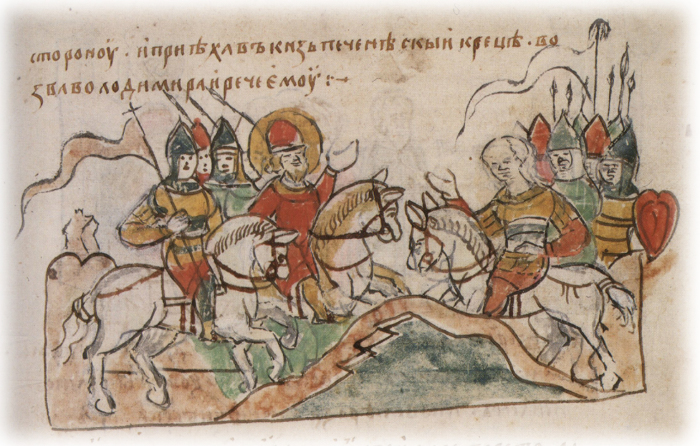 стороноу · и приѣха въ кнѧзь печенѣскыи к рецѣ · во
зва володимира и рече ємоу :~